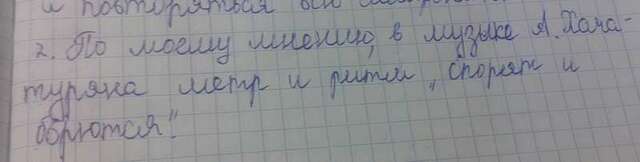 и повторяться
2. По моему мнению, в музыке А. Хача-
туряна метр и ритм „спорят и
борются"